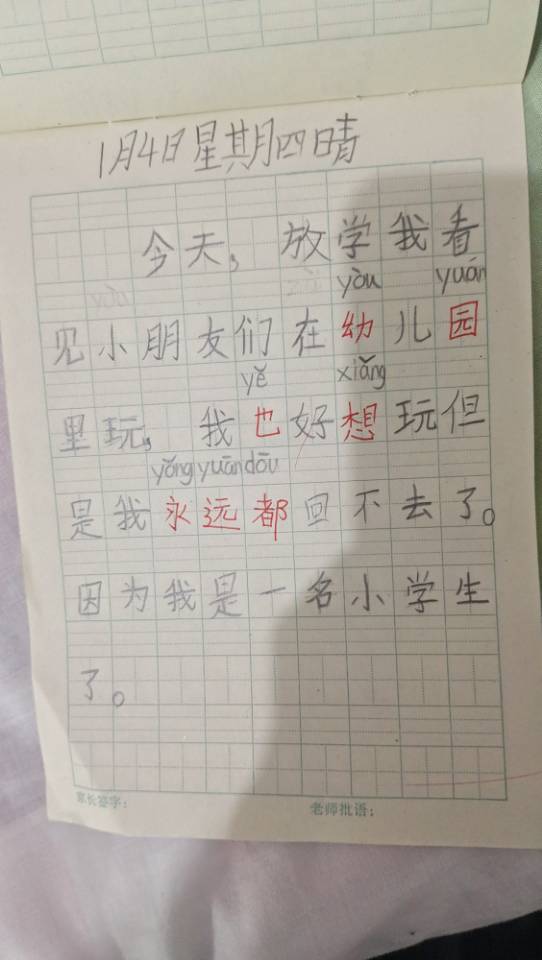 1月4日星期四晴
今天，放学我看
yòu yuán
见小朋友们在幼儿园
yě xiǎng
里玩，我也好想玩但
yǒng yuǎn dōu
是我永远都回不去了。
因为我是一名小学生
了。
家长签字： 老师批语：